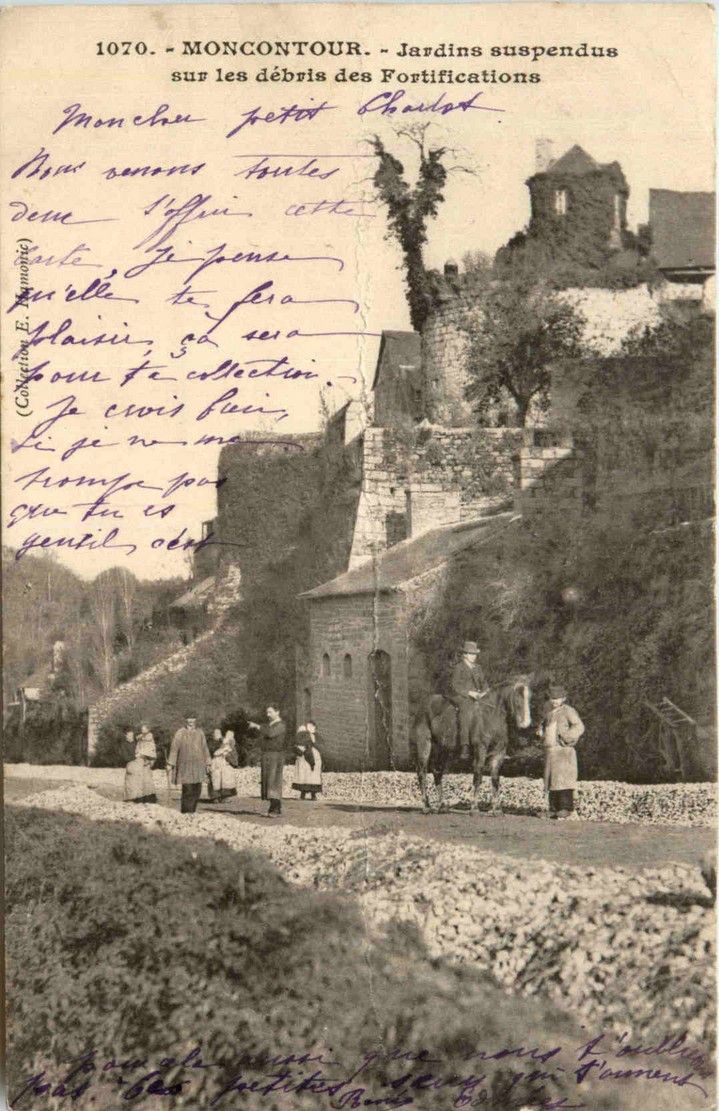 1070. - MONCONTOUR. - Jardins suspendus
sur les débris des Fortifications
Mon cher petit Charlot
Nous venons toutes
deux t'offrir cette
carte, je pense
qu'elle te fera
plaisir, ça sera
pour ta collection.
Je crois bien,
si je ne me
trompe pas
que tu es
gentil, c'est
(Collection E. Hamonic)
pour cela aussi que nous t'oublions
pas. Les petites sœurs qui t'aiment